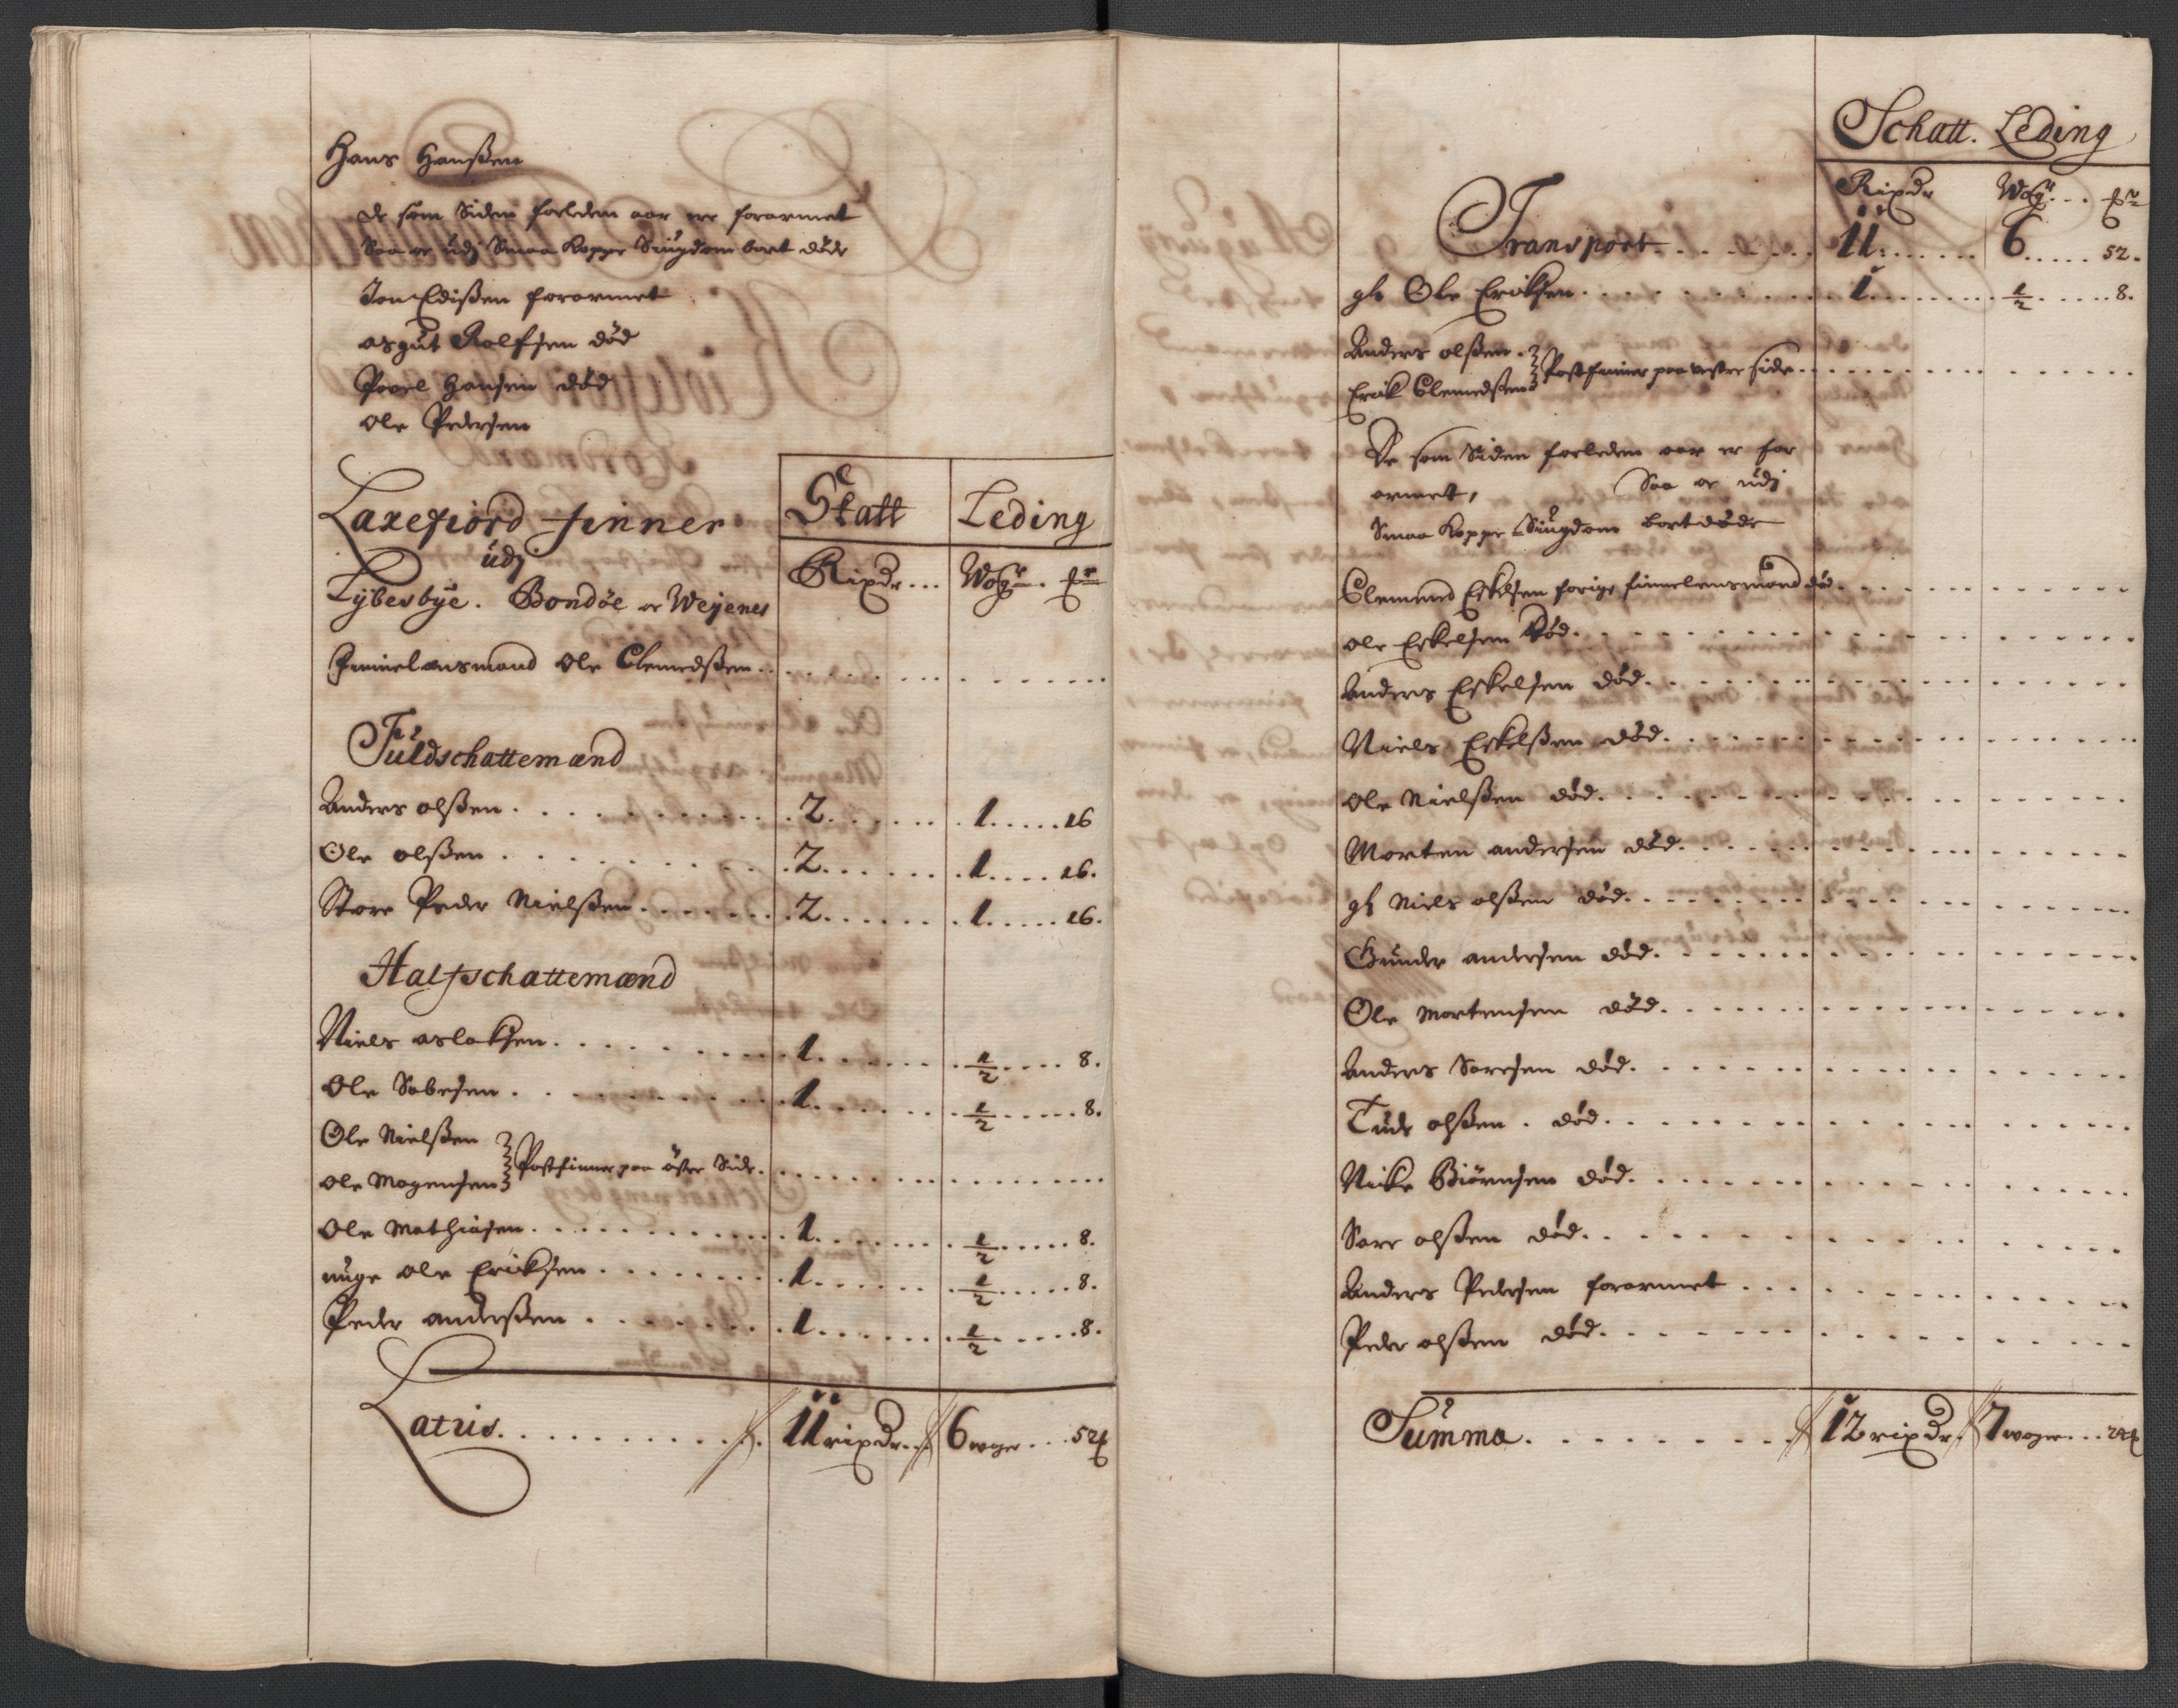 Hans Hanßen
de som Siden forleden aar ere forarmet
Saa oc udj Smaa Koppe Siugdom bort døde
Jon Edißen forarmet
asgut Rolfsen død
Povel Hansen død
Ole Pedersen
Laxefiord finner
udj
Lybesbye. Bondøe oc Weyenes
Skatt Leding
Rixdr... Wog. ...
Finnelensmand Ole Clemedßen
Fuldschattemænd
Anders olßen . . . 2 . . . 1 . . . 16
Ole olßen . . . 2 . . . 1 . . . 16.
Store Peder Nielßen . . . 2 . . . 1 . . . 16.
Halfschattemænd
Niels aslaksen . . . 1 . . . 1/2 . . . 8.
Ole Sabesen . . . 1 . . . 1/2 . . . 8.
Ole Nielßen
Ole Mogensen Postfinner paa østre Side
Ole Mathiasen . . . 1 . . . 1/2 . . . 8.
unge Ole Eriksen . . . 1 . . . 1/2 . . . 8.
Peder andersßen . . . 1 . . . 1/2 . . . 8.
Latus . . . 11 rixdr. 6 woger . . . 52
Schatt. Leding
Rixdr Wog. . .
Transport . . . 11 . . . 6 . . . 52.
gl. Ole Eriksen . . . 1 . . . 1/2 . . . 8.
Anders olßen
Erik Clemedßen Postfinner paa vestre side
De som Siden forleden aar er for
armet, Saa oc udj
Smaa Koppe Siugdom bortdøde
Clemend Eskelsen forige finnelensmand død
ole Eskelsen Død
Anders Eskelsen død
Niels Eskelßen død
Ole Nielßen død
Morten andersen død
gl Niels olßen død
Gunder andersen død
Ole Mortensen død
Anders Saresen død
Tude olßen . død
Nicke Biørnsen død
Sare olßen død
Anders Pedersen forarmet
Peder olßen død
Summa . . . 12 rixdr. 7 woger . . . 24